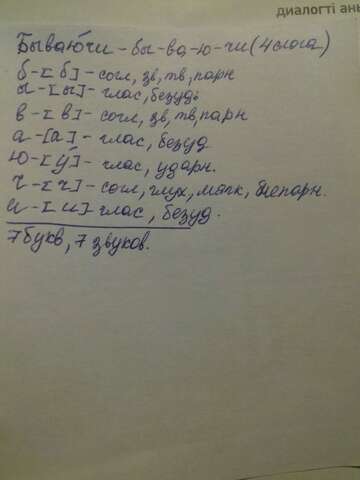 диалогті ань
Бываю́чи - бы-ва-ю-чи (4 слога)
б - [б] - согл, зв, тв, парн
ы - [ы] - глас, безуд.
в - [в] - согл, зв, тв, парн
а - [а] - глас, безуд
ю - [у́] - глас, ударн.
ч - [ч] - согл, глух, мягк, непарн.
и - [и] - глас, безуд.
7 букв, 7 звуков.